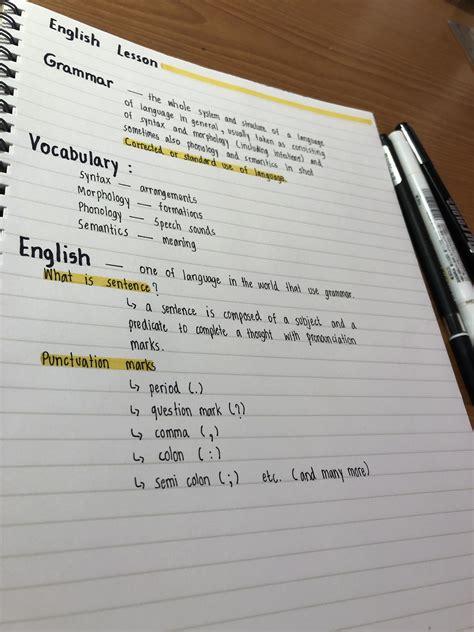 English Lesson
Grammar — the whole system and structure of a language
of language in general, usually taken as consisting
of syntax and morphology (including inflections) and
sometimes also phonology and semantics in shot
Corrected or standard use of language.
Vocabulary :
Syntax — arrangements
Morphology — formations
Phonology — speech sounds
Semantics — meaning
English — one of language in the world that use grammar.
What is sentence?
↳ a sentence is composed of a subject and a
predicate to complete a thought with pronounciation
marks.
Punctuation marks
↳ period (.)
↳ question mark (?)
↳ comma (,)
↳ colon (:)
↳ semi colon (;) etc. (and many more)